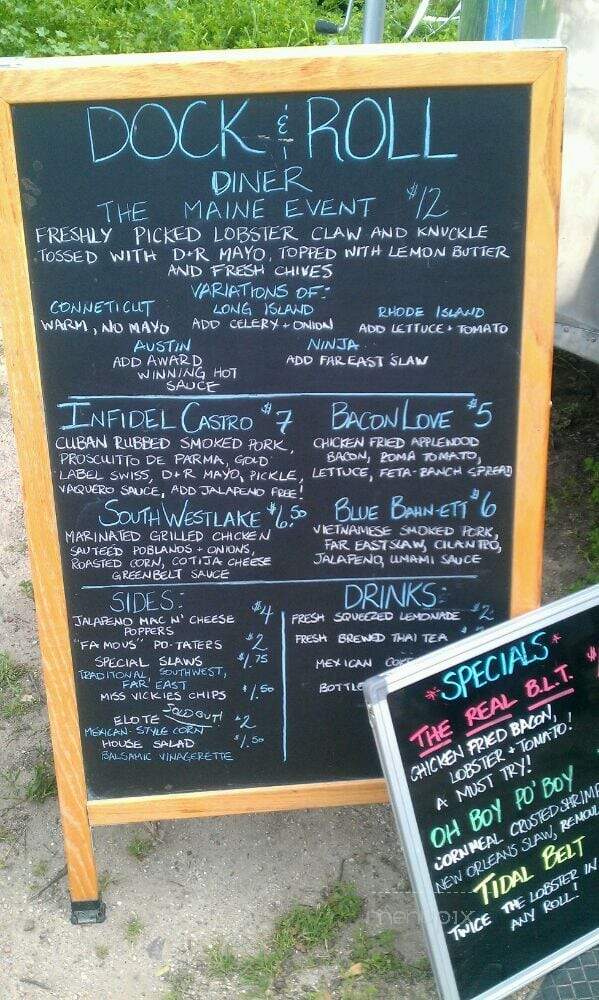 DOCK & ROLL
DINER
THE MAINE EVENT $12
FRESHLY PICKED LOBSTER CLAW AND KNUCKLE
TOSSED WITH D+R MAYO, TOPPED WITH LEMON BUTTER
AND FRESH CHIVES
VARIATIONS OF:
CONNETICUT
WARM, NO MAYO
LONG ISLAND
ADD CELERY + ONION
RHODE ISLAND
ADD LETTUCE + TOMATO
AUSTIN
ADD AWARD
WINNING HOT
SAUCE
NINJA
ADD FAR EAST SLAW
INFIDEL CASTRO $7
CUBAN RUBBED SMOKED PORK,
PROSCIUTTO DE PARMA, GOLD
LABEL SWISS, D+R MAYO, PICKLE,
VAQUERO SAUCE, ADD JALAPENO FREE!
BACON LOVE $5
CHICKEN FRIED APPLEWOOD
BACON, ROMA TOMATO,
LETTUCE, FETA-RANCH SPREAD
SOUTH WESTLAKE $6.50
MARINATED GRILLED CHICKEN
SAUTEED POBLANOS + ONIONS,
ROASTED CORN, COTIJA CHEESE
GREENBELT SAUCE
BLUE BAHN-ETT $6
VIETNAMESE SMOKED PORK,
FAR EAST SLAW, CILANTRO,
JALAPENO, UMAMI SAUCE
SIDES:
JALAPENO MAC N' CHEESE $4
POPPERS
"FAMOUS" PO-TATERS $2
SPECIAL SLAWS $1.75
TRADITIONAL, SOUTHWEST,
FAR EAST
MISS VICKIES CHIPS $1.50
SOLD OUT!
ELOTE $2
MEXICAN STYLE CORN
HOUSE SALAD $1.50
BALSAMIC VINAGERETTE
DRINKS:
FRESH SQUEEZED LEMONADE $2
FRESH BREWED THAI TEA
MEXICAN COKE
BOTTLE
*SPECIALS*
THE REAL B.L.T.
CHICKEN FRIED BACON,
LOBSTER + TOMATO!
A MUST TRY!
OH BOY PO' BOY
CORNMEAL CRUSTED SHRIMP
NEW ORLEANS SLAW, REMOUL
TIDAL BELT
TWICE THE LOBSTER IN
ANY ROLL!
menupix